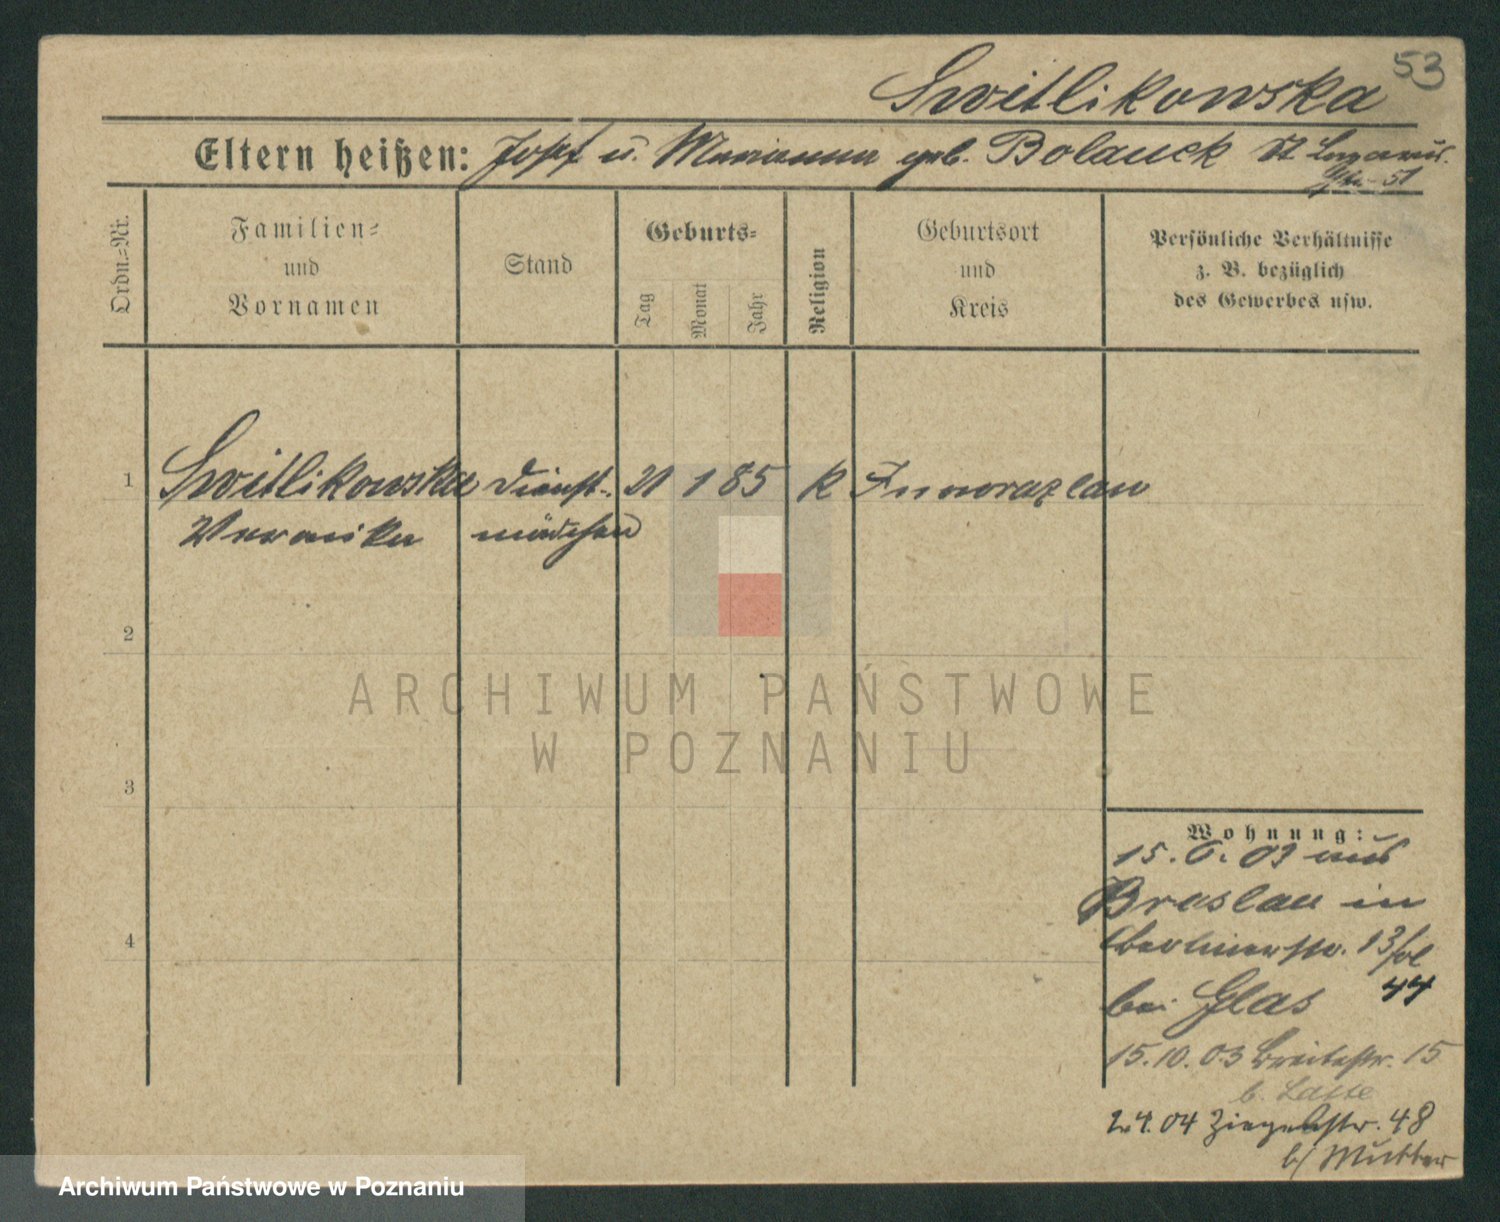 53
Switlikowska
Eltern heißen: Josef u. Marianna geb. Bolauck St Lazarus.
51
Ordn.=Nr.
Familien=
und
Vornamen
Stand
Geburts=
Tag
Monat
Jahr
Religion
Geburtsort
und
Kreis
Persönliche Verhältnisse
z. B. bezüglich
des Gewerbes usw.
1 Switlikowska Dienst- 21 1 85 k Inowrazlaw
Veronika mädchen
2
3
4
ARCHIWUM PAŃSTWOWE
W POZNANIU
Wohnung:
15. 6. 03 aus
Breslau in
Berlinerstr. 13/
bei Glas 44
15.10.03 Breitestr. 15
b. Lasse
2.4.04 Ziegelstr. 48
b/ Mutter
Archiwum Państwowe w Poznaniu